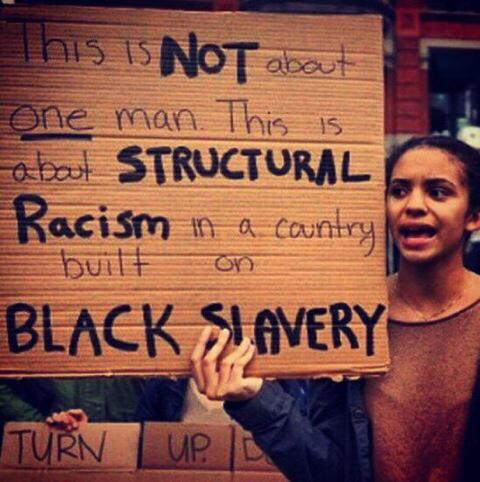 This is NOT about
one man. This is
about STRUCTURAL
Racism in a country
built on
BLACK SLAVERY
TURN UP. D